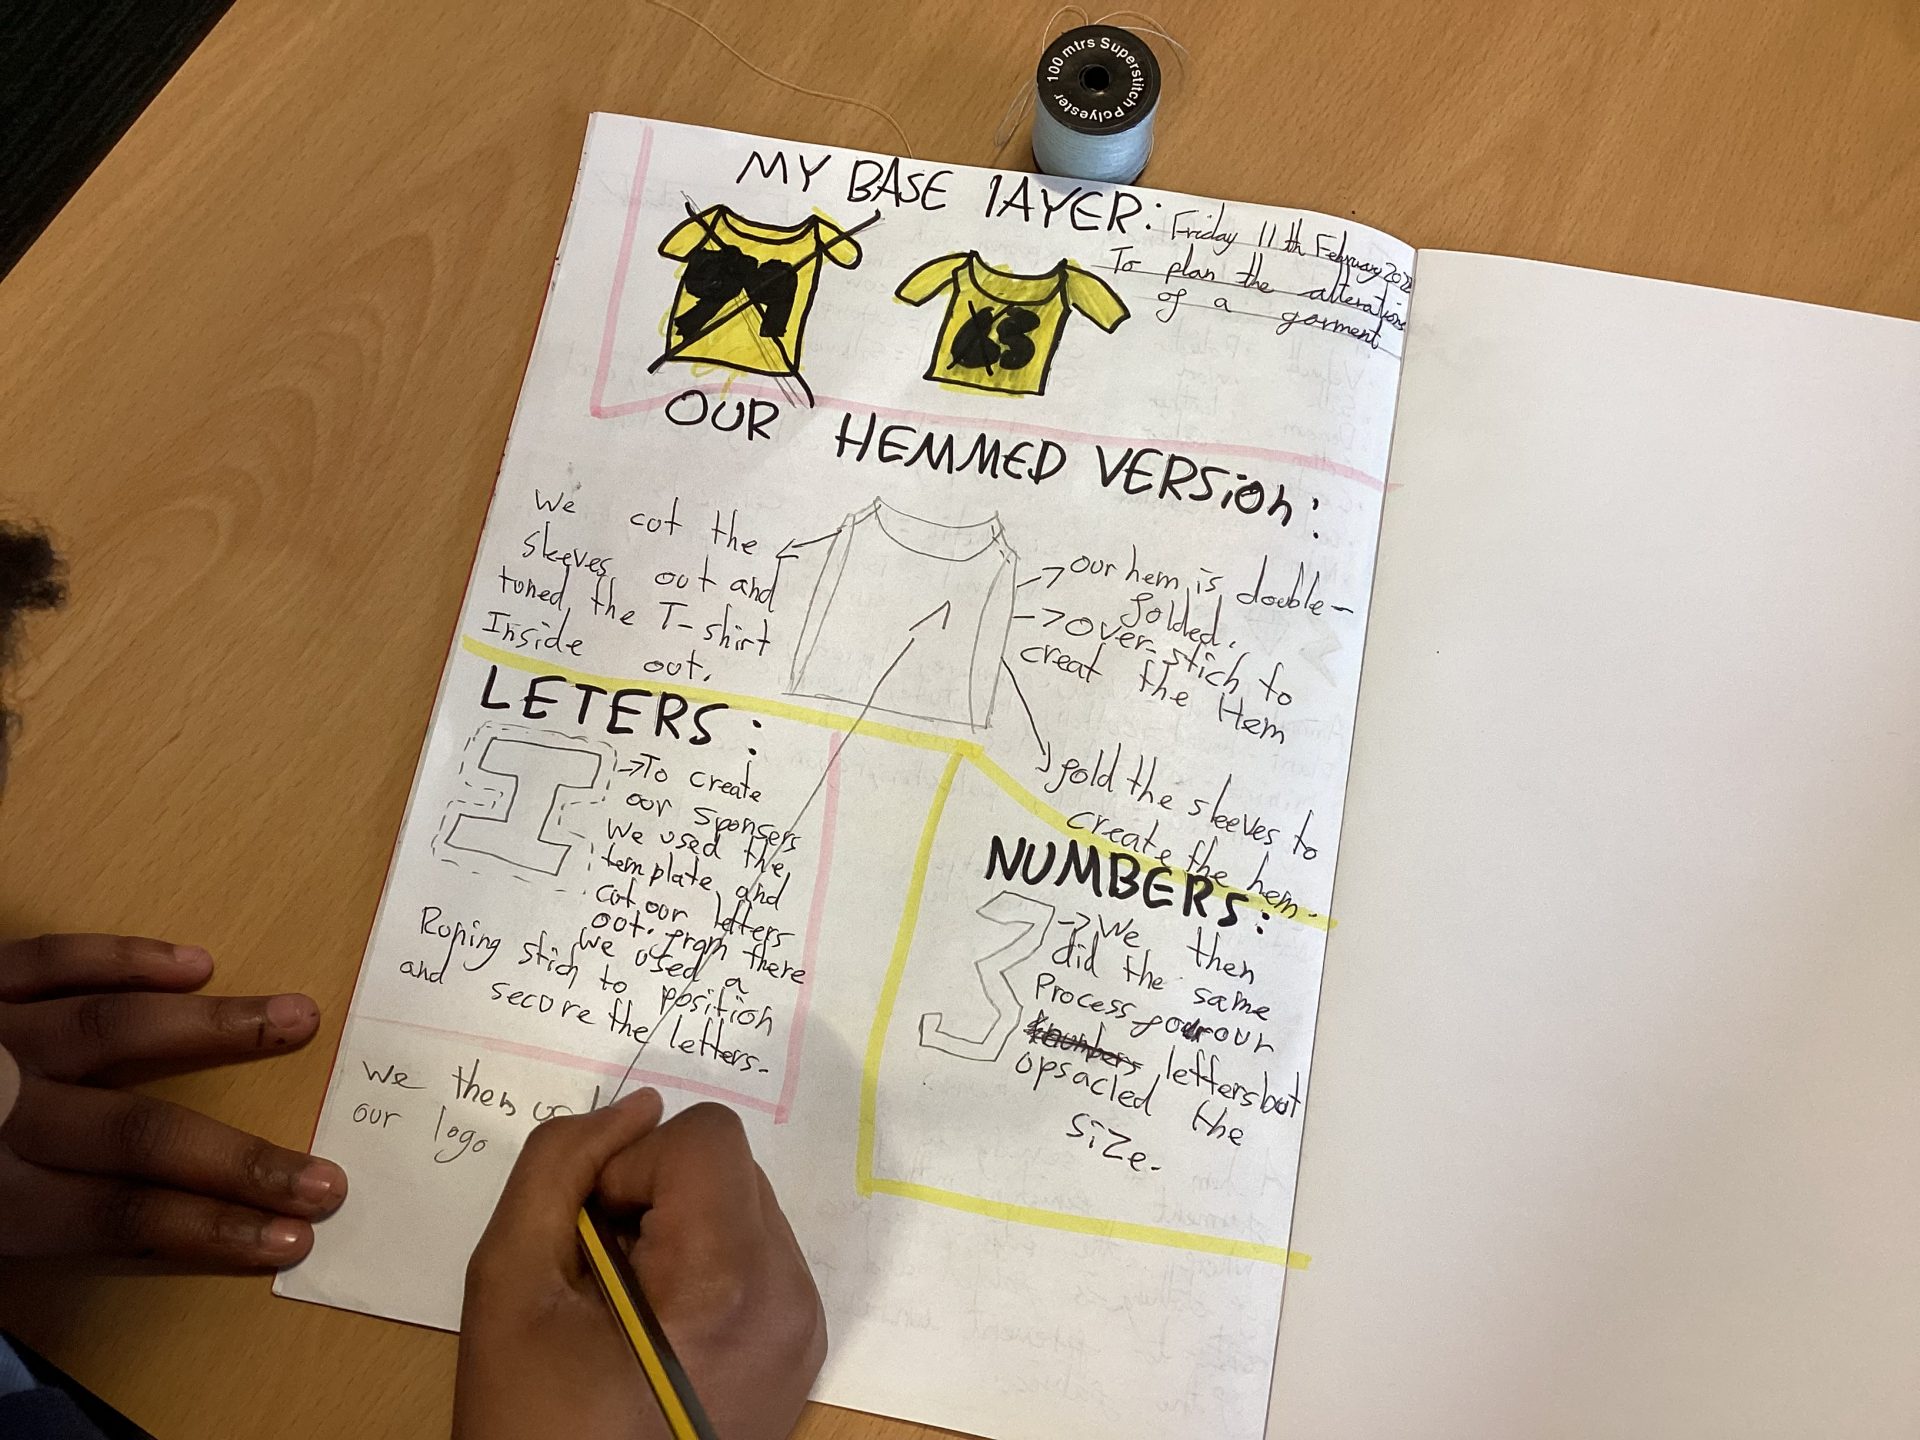 100 mtrs Superstitch polyester
MY BASE lAYER:
Friday 11th February 2022
To plan the alterations
of a garment
OUR HEMMED VERSioh:
We cut the
sleeves out and
tuned the T-shirt
Inside out.
our hem is double-
folded.
over-stich to
creat the Hem
fold the sleeves to
create the hem.
LETERS:
To create
our sponsers
We used the
template and
cut our letters
out. from there
we used a
Roping stich to position
and secure the letters.
NUMBERS:
We then
did the same
Process for our
letters but
opsacled the
size.
we then
our logo